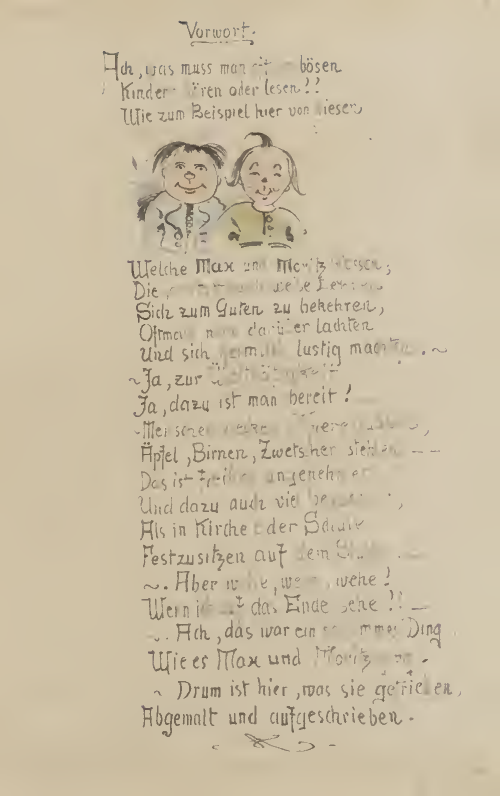 Vorwort.
Ach, was muss man bösen
Kinder oder lesen!!
Wie zum Beispiel hier von diesen,
Welche Max und Moritz hiessen;
Die
Sich zum Guten zu bekehren,
Oftmals noch darüber lachten
Und sich heimlich lustig machten. ~
~ Ja, zur
Ja, dazu ist man bereit!
- Menschen
Äpfel, Birnen, Zwetschen stehlen - -
Das ist freilich angenehmer
Und dazu auch viel
Als in Kirche oder Schule
Festzusitzen auf dem
~. Aber wehe, wehe, wehe!
Wenn ich auf das Ende sehe!! -
~. Ach, das war ein schlimmes Ding
Wie es Max und Moritz .
~ Drum ist hier, was sie getrieben,
Abgemalt und aufgeschrieben.